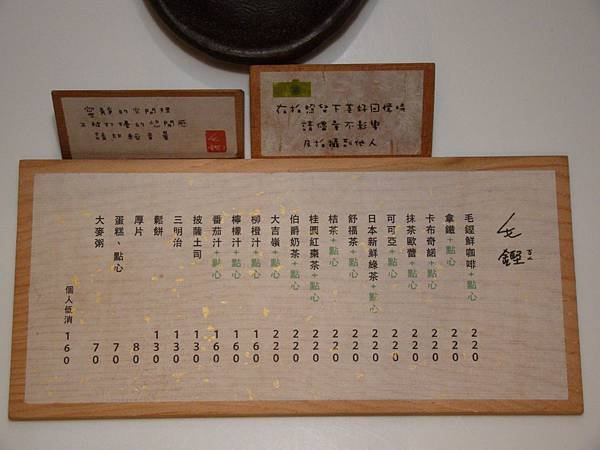 空靜的空間裡
不被打擾的悠閒感
請把輕音量
在拍照留下美好回憶時
請儘奇不影響
及拍攝到他人
毛鏗
毛鏗鮮咖啡+點心 220
拿鐵+點心 220
卡布奇諾+點心 220
抹茶歐蕾+點心 220
可可亞+點心 220
日本新鮮綠茶+點心 220
舒福茶+點心 220
桔茶+點心 220
桂圓紅棗茶+點心 220
伯爵奶茶+點心 220
大吉嶺+點心 220
柳橙汁+點心 160
檸檬汁+點心 160
番茄汁+點心 160
披薩土司 130
三明治 130
鬆餅 130
厚片 80
蛋糕、點心 70
大麥粥 70
個人低消 160